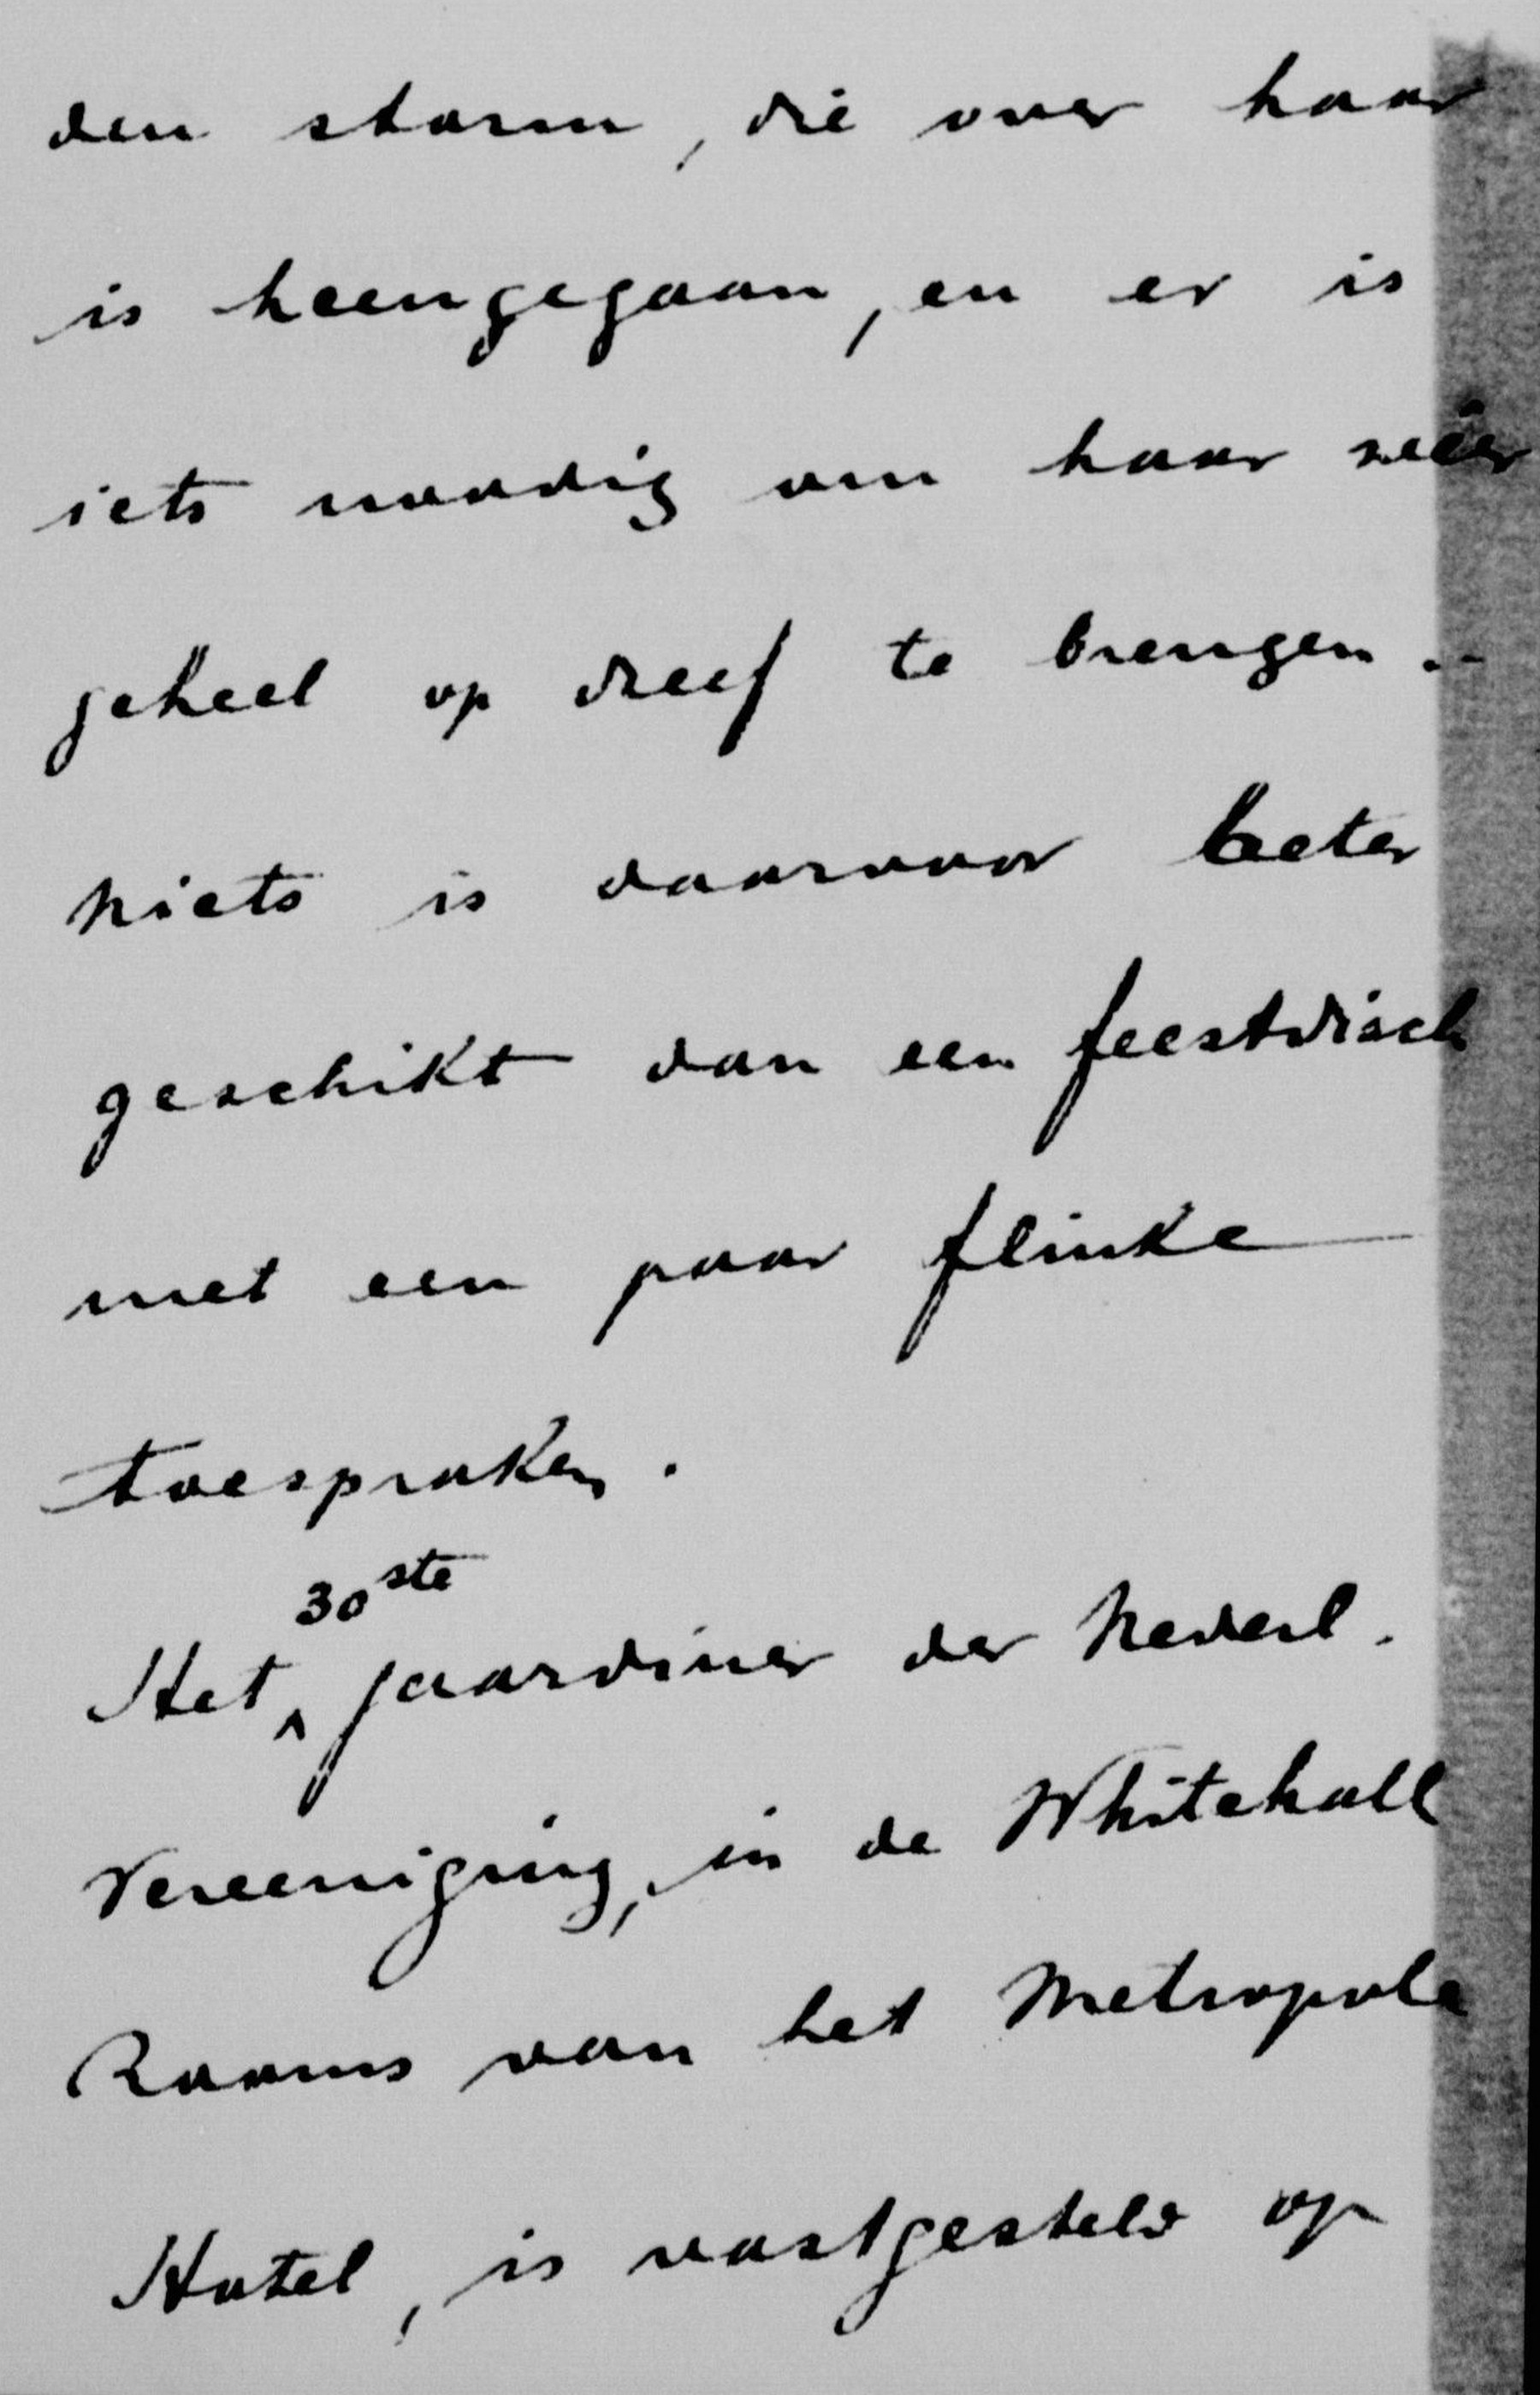 den storm, die over haar
is heengegaan, en er is
iets noodig om haar weêr
geheel op dreef te brengen.-
Niets is daarvoor beter
geschikt dan een feestdisch
met een paar flinke
toespraken.
30ste
Het ^ jaardiner der Nederl.
Vereeniging, in de Whitehall
Rooms van het Metropole
Hotel, is vastgesteld op